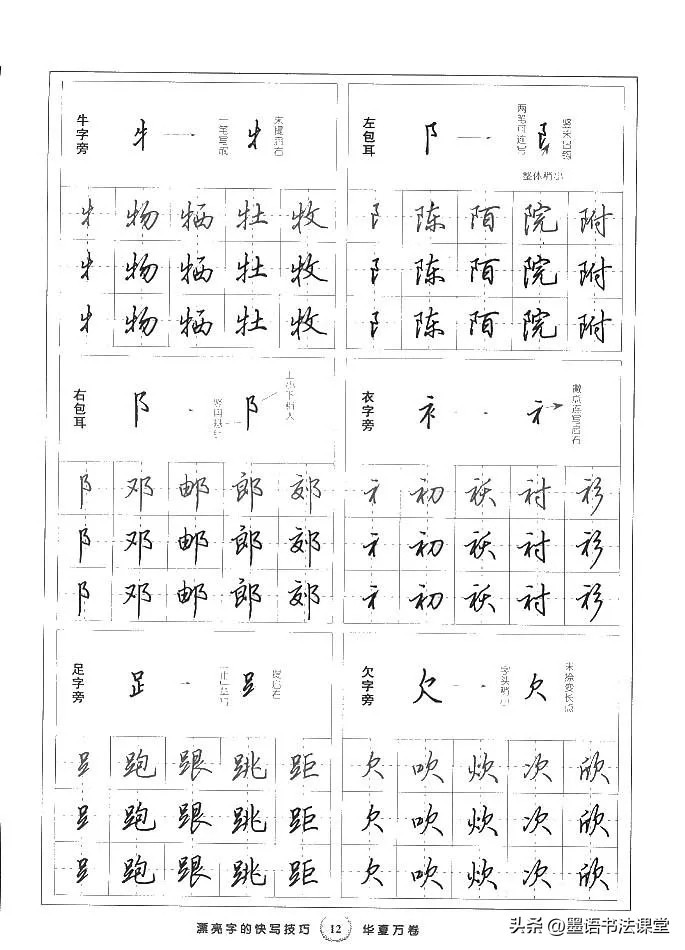 牛字旁
牜
一笔写成
牜
末提启右
牜 物 牺 牡 牧
牜 物 牺 牡 牧
牜 物 牺 牡 牧
左包耳
阝
两笔可连写
阝
整体稍小
阝 陈 陌 院 附
阝 陈 陌 院 附
阝 陈 陌 院 附
右包耳
阝
竖用悬针
阝
上小下稍大
阝 邓 邮 郎 郊
阝 邓 邮 郎 郊
阝 邓 邮 郎 郊
衣字旁
衤
衤
撇点连写启右
衤 初 袄 衬 衫
衤 初 袄 衬 衫
衤 初 袄 衬 衫
足字旁
𧾷
𧾷
提启右
𧾷 跑 跟 跳 距
𧾷 跑 跟 跳 距
𧾷 跑 跟 跳 距
欠字旁
欠
字头稍小
欠
末捺变长点
欠 吹 炊 次 欣
欠 吹 炊 次 欣
欠 吹 炊 次 欣
漂亮字的快写技巧 12 华夏万卷
头条 @墨语书法课堂